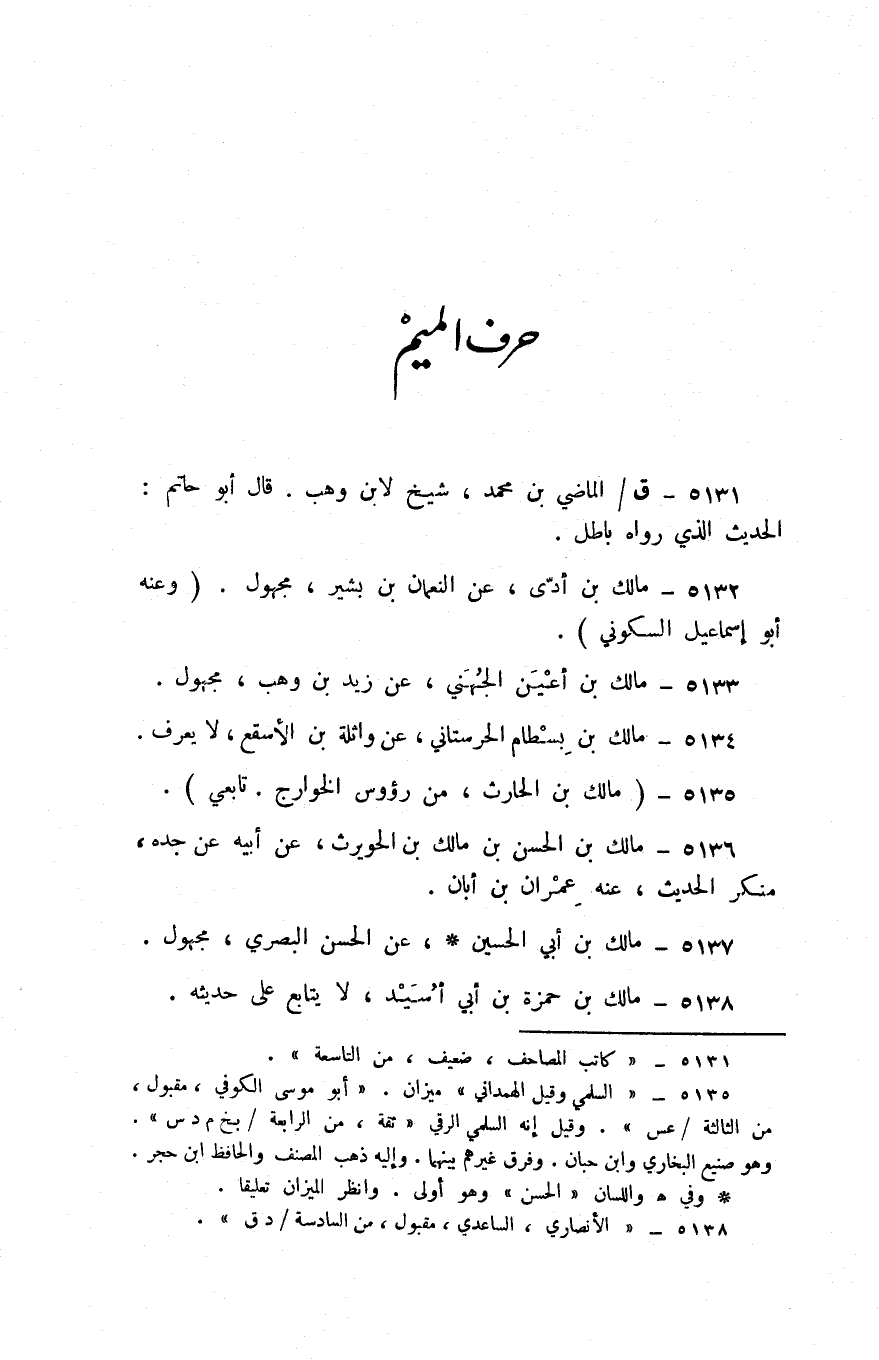 حرف الميمْ
٥١٣١ – ق / الماضي بن محمد ، شيخ لابن وهب . قال أبو حاتم :
الحديث الذي رواه باطل .
٥١٣٢ – مالك بن أدّى ، عن النعمان بن بشير ، مجهول . ( وعنه
أبو إسماعيل السكوني ) .
٥١٣٣ – مالك بن أعْيَن الجُهَني ، عن زيد بن وهب ، مجهول .
٥١٣٤ – مالك بن بِسْطام الحرستاني ، عن واثلة بن الأسقع ، لا يعرف .
٥١٣٥ – ( مالك بن الحارث ، من رؤوس الخوارج . تابعي ) .
٥١٣٦ – مالك بن الحسن بن مالك بن الحويرث ، عن أبيه عن جده ،
منكر الحديث ، عنه عِمْران بن أبان .
٥١٣٧ – مالك بن أبي الحسين * ، عن الحسن البصري ، مجهول .
٥١٣٨ – مالك بن حمزة بن أبي أُسَيْد ، لا يتابع على حديثه .
٥١٣١ – « كاتب المصاحف ، ضعيف ، من التاسعة » .
٥١٣٥ – « السلمي وقيل الهمداني » ميزان . « أبو موسى الكوفي ، مقبول ،
من الثالثة / عس » . وقيل إنه السلمي الرقي « ثقة ، من الرابعة / بخ م د س » .
وهو صنيع البخاري وابن حبان . وفرق غيرهم بينهما . وإليه ذهب المصنف والحافظ ابن حجر .
* وفي ه واللسان « الحسن » وهو أولى . وانظر الميزان تعليقا .
٥١٣٨ – « الأنصاري ، الساعدي ، مقبول ، من السادسة / د ق » .